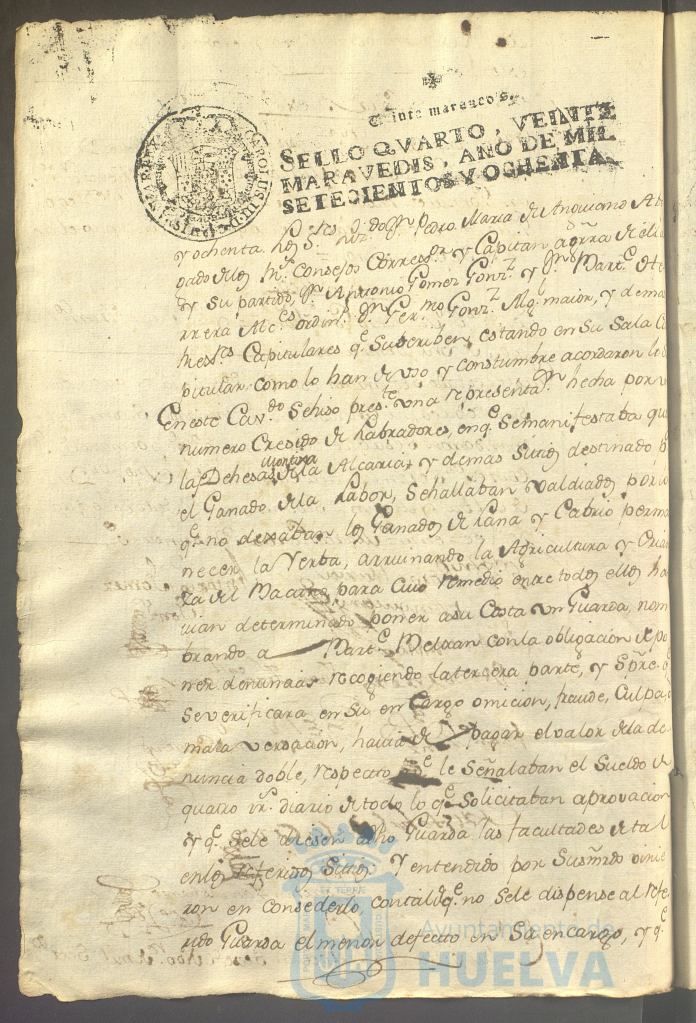 SELLO QVARTO, VEINTE
MARAVEDIS, AÑO DE MIL
SETECIENTOS Y OCHENTA.
y ochenta. los S.res Liz.do Dn Pedro Maria de A
gado de los Rs Consejos Correg.or y Capitan a grra de ella
y su partido, Dn Antonio Gomez Gonz.z y Dn Mart.n de He
rrera Alc.es ordin.s Dn Ger.mo Gonz.z Alg.l maior, y demas
Capitulares q.e Suscriben, estando en Su Sala Ca
pitular como lo han de uso y constumbre acordaron lo
En este Cav.do Sehiso pres.te una representaz.n hecha por un
numero Cresido de Labradores, en q.e Semanifestaba que
la Dehesa de la Alcaria, y demas Sitios destinado p
Montina
el Ganado de la Labor, Sehallaban valdiados por
q.e no dexaban los Ganados de Lana y Cabrio perma
necer la Yerba, arruinando la Agricultura y Crian
za del Macho, para Cuio remedio entre todos ellos ha
vian determinado poner a su Costa un Guarda, nom
brando a Mart.n Beltran con la obligacion de po
ner denuncias recogiendo la tersera parte, y Spre q.e
Severificara en Su en Cargo omicion, fraude, Culpa o
mala versacion, havia de pagar el valor dela de
nuncia doble, respecto aq.e le Señalaban el Sueldo de
quatro rs. diario de todo lo q.e Solicitaban aprovacion
y q.e Sele diesen adho Guarda las facultades de tal
en los referidos Sitios. Y entendido por Susmrds vinie
ron en Consederlo, con tal q.e no Sele dispense al refe
rido Guarda el menor defecto en Su encargo, y q.e
Ayuntamiento de
HUELVA